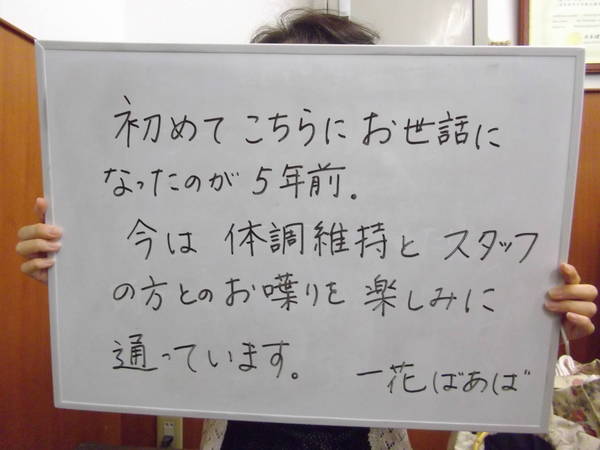 初めてこちらにお世話に
なったのが5年前。
今は体調維持とスタッフ
の方とのお喋りを楽しみに
通っています。
一花ばあば